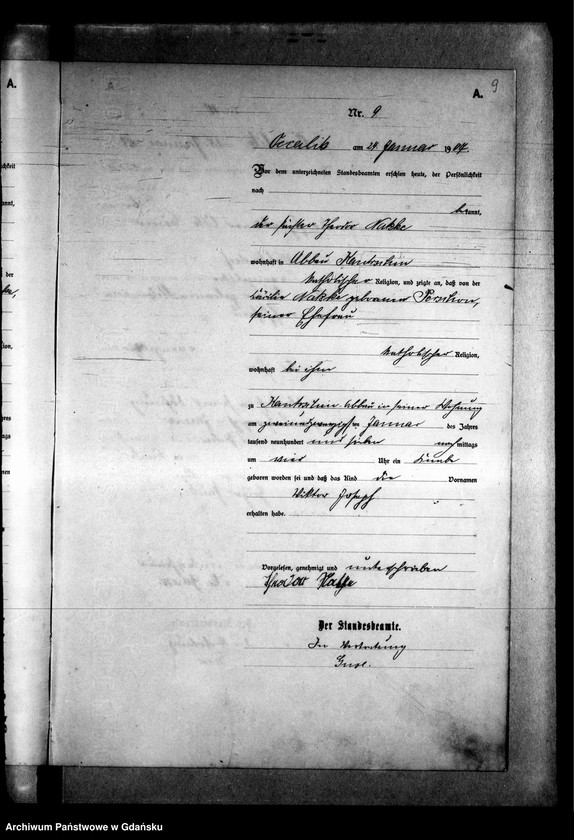 A.
9
A.
Nr. 9
am 24 Januar 1907.
Vor dem unterzeichneten Standesbeamten erschien heute, der Persönlichkeit
nach
bekannt,
der Theodor Nakke
wohnhaft in Abbau
katholischer Religion, und zeigte an, daß von der
Cäcilie Nakke geborenen
seiner Ehefrau
katholischer Religion,
wohnhaft bei ihm
zu Abbau in seiner Wohnung
am zweiundzwanzigsten Januar des Jahres
tausend neunhundert und sieben nachmittags
um vier Uhr ein Knabe
geboren worden sei und daß das Kind die Vornamen
Viktor Joseph
erhalten habe.
Vorgelesen, genehmigt und unterschrieben
Theodor
Der Standesbeamte.
In Vertretung
Archiwum Państwowe w Gdańsku